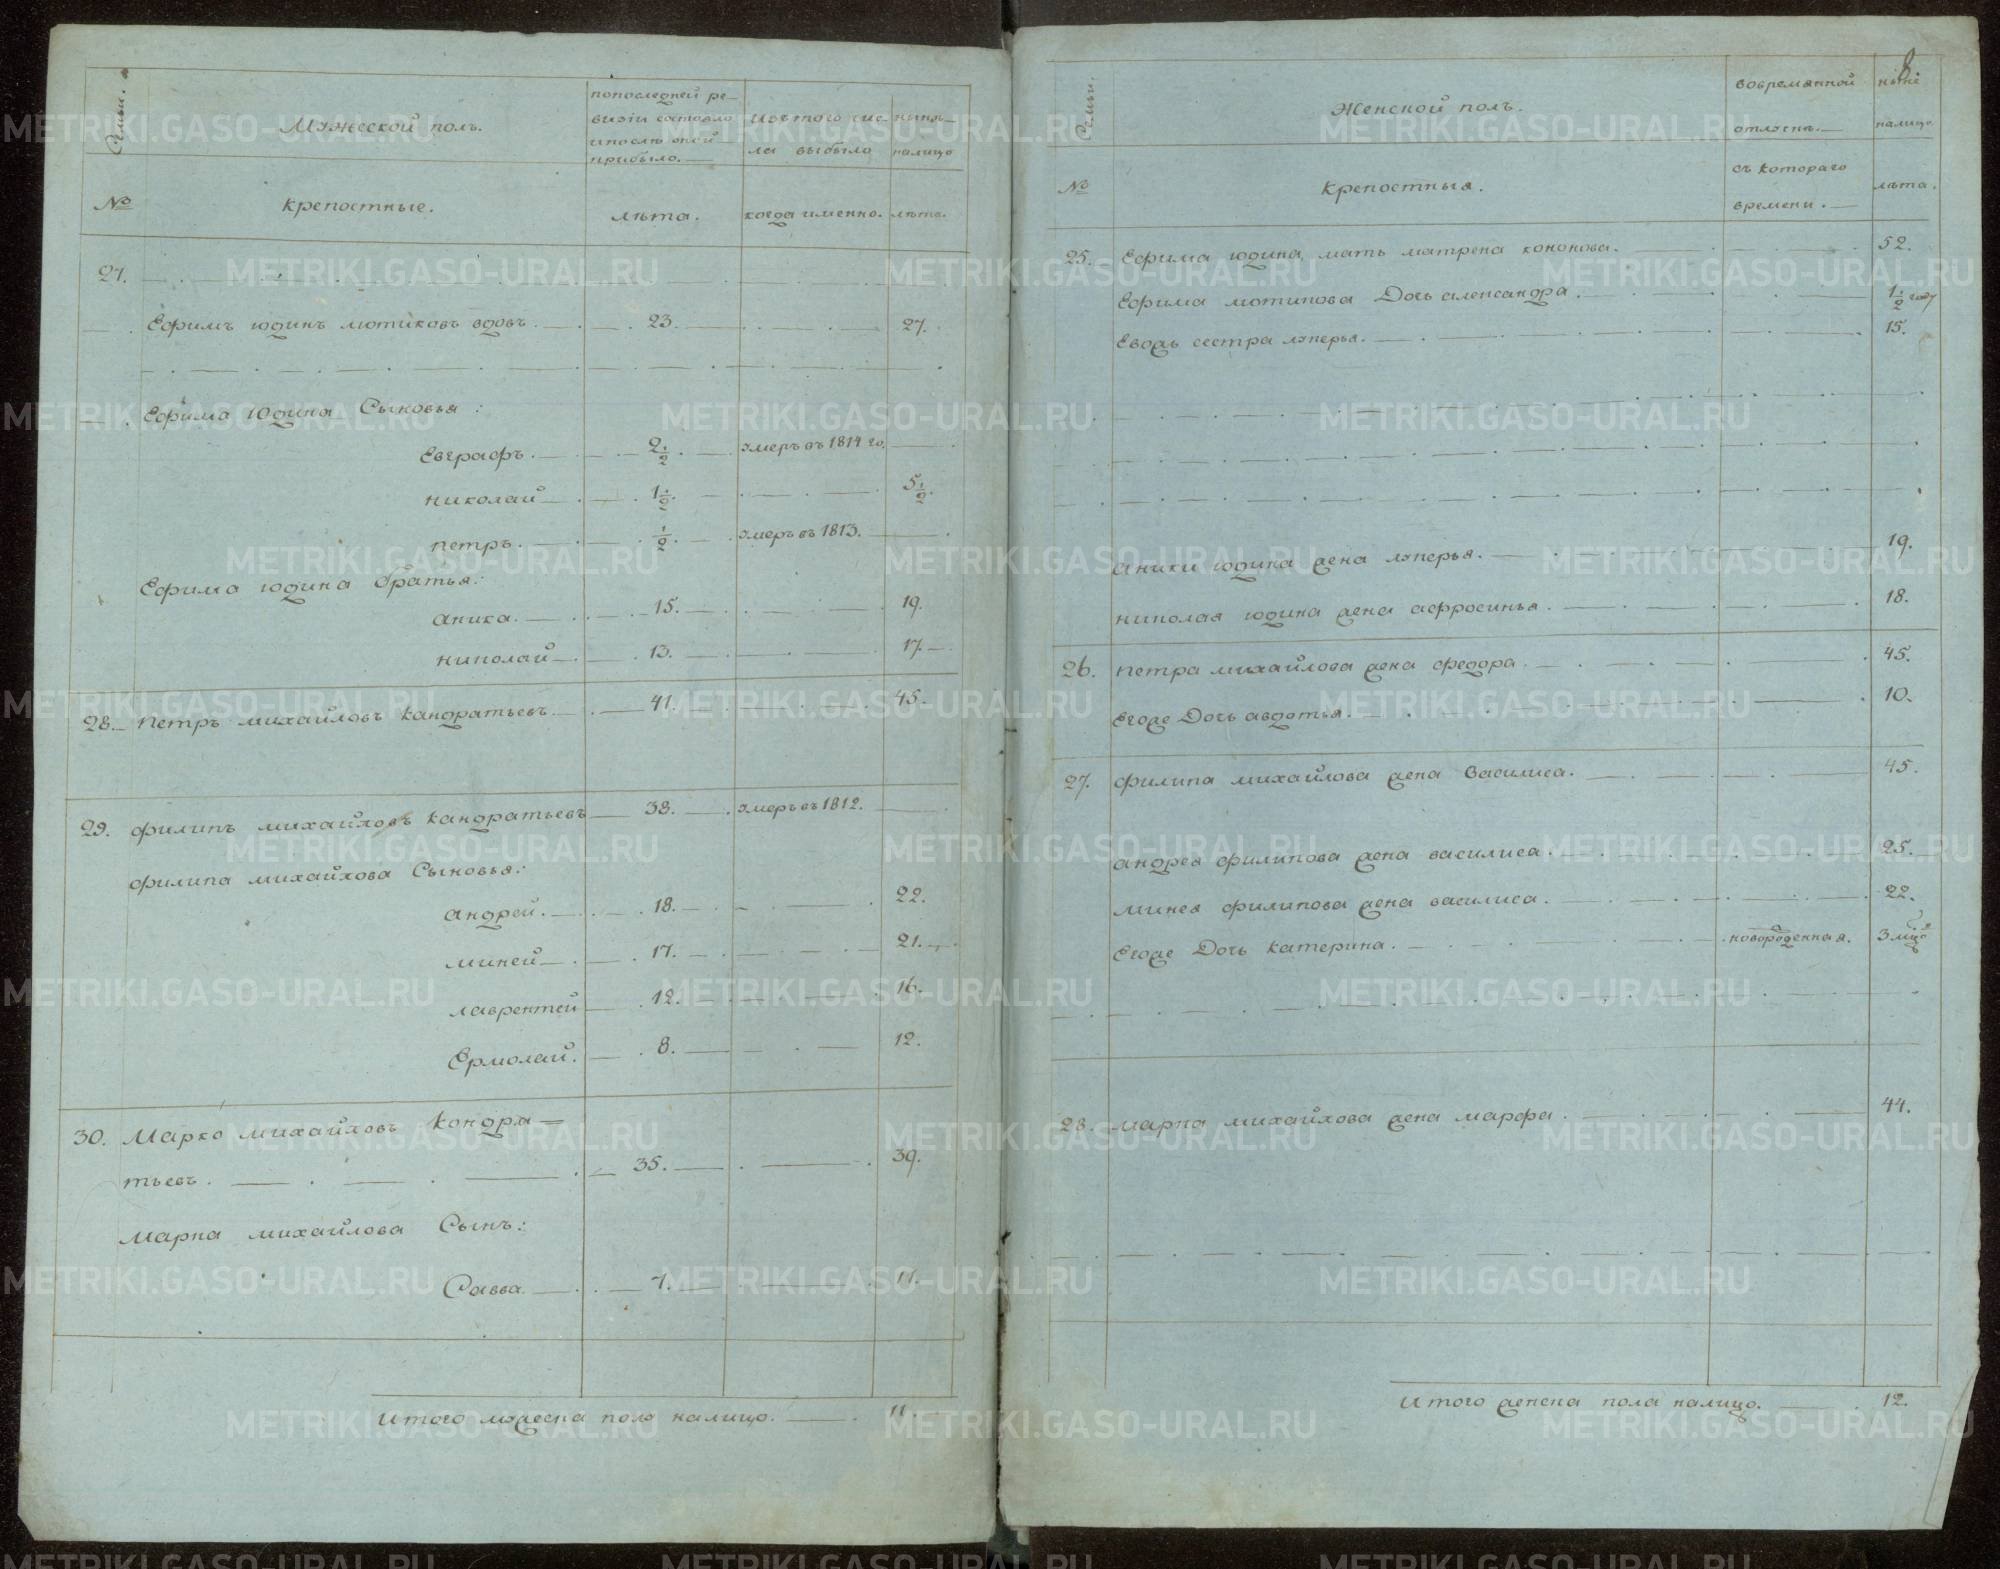 Семьи.
Мужеской полъ.
попоследней ре-
визіи состояло
ипослѣ оной
прибыло.
Изътого чис-
ла выбыло
ныне
налицо
№
крепостные.
лѣта.
когда именно.
лѣта.
27.
Ефимъ юдинъ лютиковъ вдовъ. 23. 27.
Ефима Юдина Сыновья:
Евграфъ. 2 1/2. умеръ въ 1814 го.
николай 1 1/2. 5 1/2.
петръ. 1/2. умеръ въ 1813.
Ефима юдина братья:
аника. 15. 19.
николай 13. 17.
28. петръ михайловъ кандратьевъ 41. 45.
29. филипъ михайловъ кандратьевъ 38. умеръ въ 1812.
филипа михайлова Сыновья:
андрей. 18. 22.
миней 17. 21.
лаврентей 12. 16.
Ермолай. 8. 12.
30. Марко михайловъ кондра-
тьевъ. 35. 39.
марка михайлова Сынъ:
Савва. 7. 11.
Итого мужеска пола налицо. 11.
8.
Семьи.
Женской полъ.
вовремянной
отлучкѣ.
ныне
налицо
№
крепостныя.
съ котораго
времени.
лѣта.
25. Ефима юдина мать матрена кононова. 52.
Ефима лютикова Дочь александра. 1 1/2 году
Евоже сестра лукерья. 15.
аники юдина жена лукерья. 19.
николая юдина жена афросинья. 18.
26. петра михайлова жена федора. 45.
Егоже Дочь авдотья. 10.
27. филипа михайлова жена Василиса. 45.
андрея филипова жена василиса. 25.
минея филипова жена василиса. 22.
Егоже Дочь катерина. новорожденная. 3 мцо
28. марка михайлова жена марфа. 44.
Итого женска пола налицо. 12.
METRIKI.GASO-URAL.RU